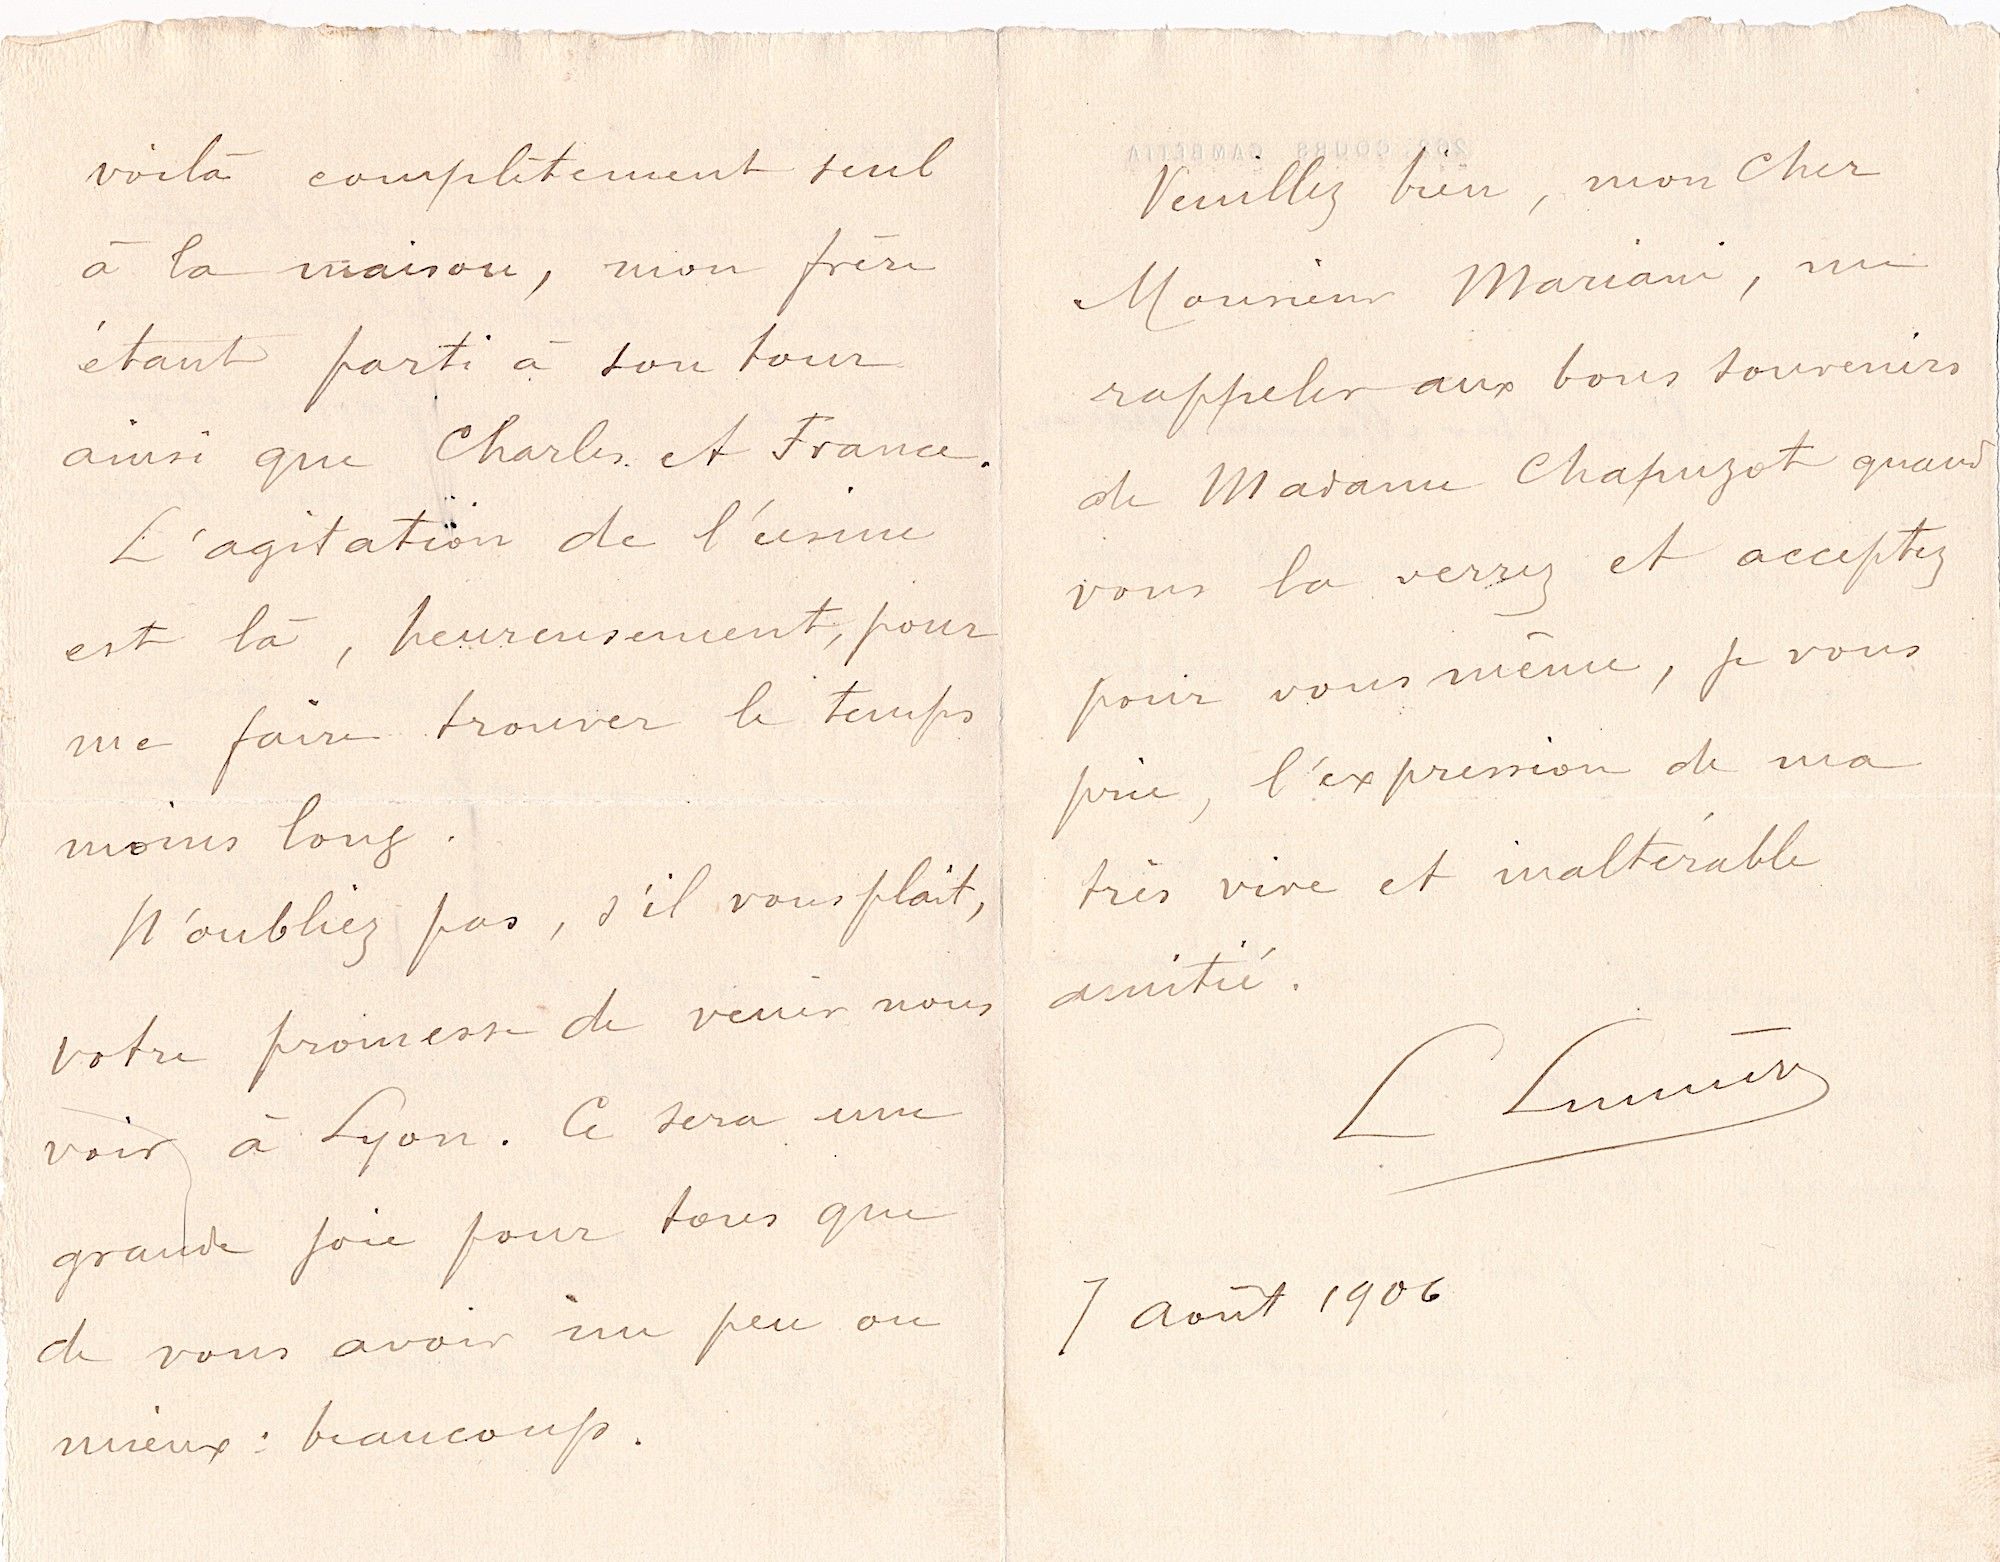 voilà complètement seul
à la maison, mon frère
étant parti à son tour
ainsi que Charles et France.
L'agitation de l'usine
est là, heureusement, pour
me faire trouver le temps
moins long.
N'oubliez pas, s'il vous plait,
votre promesse de venir nous
voir à Lyon. Ce sera une
grande joie pour tous que
de vous avoir un peu ou
mieux : beaucoup.
262, COURS GAMBETTA
Veuillez bien, mon cher
Monsieur Mariani, me
rappeler aux bons souvenirs
de Madame Chapuzot quand
vous la verrez et acceptez
pour vous même, je vous
prie, l'expression de ma
très vive et inaltérable
amitié.
L Lumière
7 août 1906